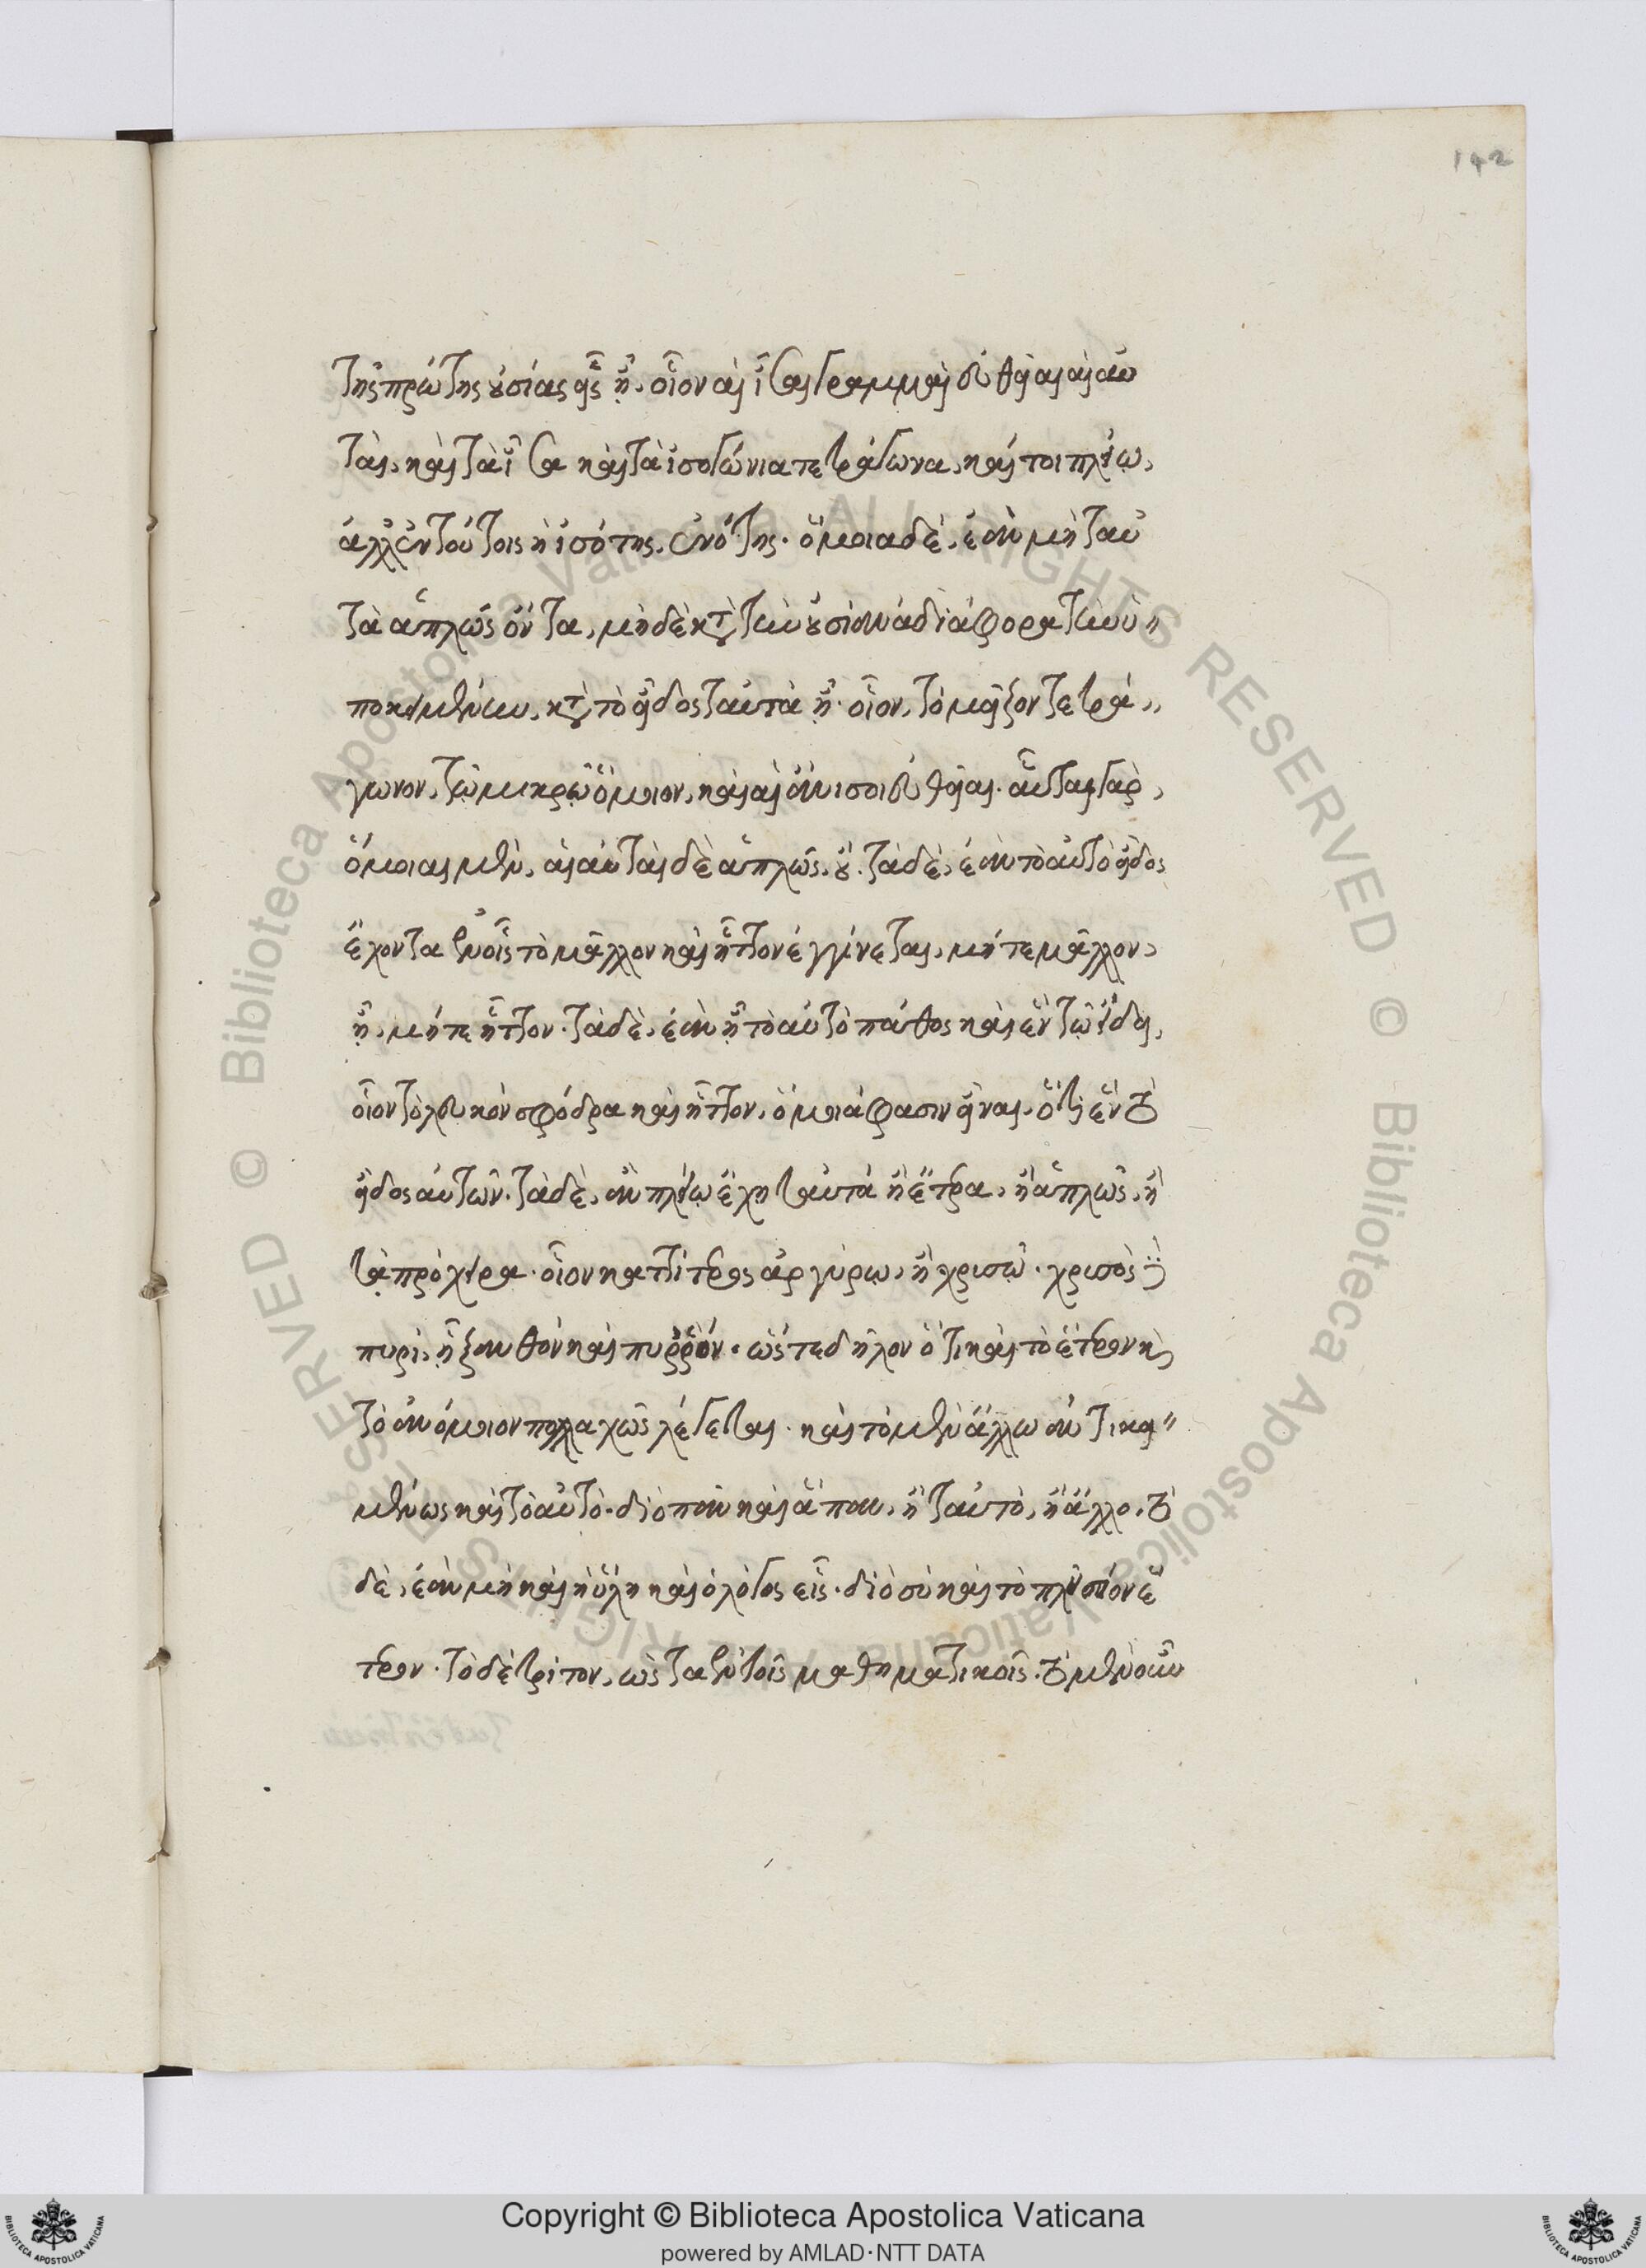 142
τῆς πρώτης οὐσίας εἷς ᾖ. οἷον αἱ ἴσαι γραμμαὶ εὐθεῖαι αἱ αὐ
ταί. καὶ τὰ ἴσα καὶ τὰ ἰσογώνια τετράγωνα. καί τοι πλείω.
ἀλλ' ἐν τούτοις ἡ ἰσότης, ἑνότης. ὅμοια δὲ, ἐὰν μὴ ταυ
τὰ ἁπλῶς ὄντα, μηδὲ κατὰ τὴν οὐσίαν ἀδιάφορα τὴν ὑ"
ποκειμένην, κατὰ τὸ εἶδος ταὐτὰ ᾖ. οἷον, τὸ μεῖζον τετρά"
γωνον, τῷ μικρῷ ὅμοιον, καὶ αἱ ἄνισοι εὐθεῖαι. αὗται γὰρ,
ὅμοιαι μὲν, αἱ αὐταὶ δὲ ἁπλῶς, οὔ. τὰ δὲ, ἐὰν τὸ αὐτὸ εἶδος
ἔχοντα ἐν οἷς τὸ μᾶλλον καὶ ἧττον ἐγγίνεται, μήτε μᾶλλον,
ᾖ, μήτε ἧττον. τὰ δὲ, ἐὰν ᾖ τὸ αὐτὸ πάθος καὶ ἓν τῷ εἴδει,
οἷον τὸ λευκὸν σφόδρα καὶ ἧττον, ὅμοιά φασιν εἶναι. ὅτι ἓν τὸ
εἶδος αὐτῶν. τὰ δὲ, ἂν πλείω ἔχῃ ταὐτὰ ἢ ἕτερα, ἢ ἁπλῶς, ἢ
τὰ πρόχειρα. οἷον καττίτερος ἀργύρῳ, ἢ χρυσῷ. χρυσὸς δὲ
πυρὶ, ᾗ ξανθὸν καὶ πυῤῥόν. ὥστε δῆλον ὅτι καὶ τὸ ἕτερον καὶ
τὸ ἀνόμοιον πολλαχῶς λέγεται. καὶ τὸ μὲν ἄλλο ἀντικει"
μένως καὶ τὸ αὐτό. διὸ πᾶν καὶ ἅπαν, ἢ ταὐτὸ, ἢ ἄλλο. τὸ
δὲ, ἐὰν μὴ καὶ ἡ ὕλη καὶ ὁ λόγος εἷς. διὸ σὺ καὶ τὸ πλησίον ἕ
τερον. τὸ δὲ τρίτον, ὡς τὰ ἐν τοῖς μαθηματικοῖς. τὸ μὲν οὖν
© Biblioteca Apostolica Vaticana ALL RIGHTS RESERVED © Biblioteca Apostolica Vaticana ALL RIGHTS RESERVED
Copyright © Biblioteca Apostolica Vaticana
powered by AMLAD·NTT DATA